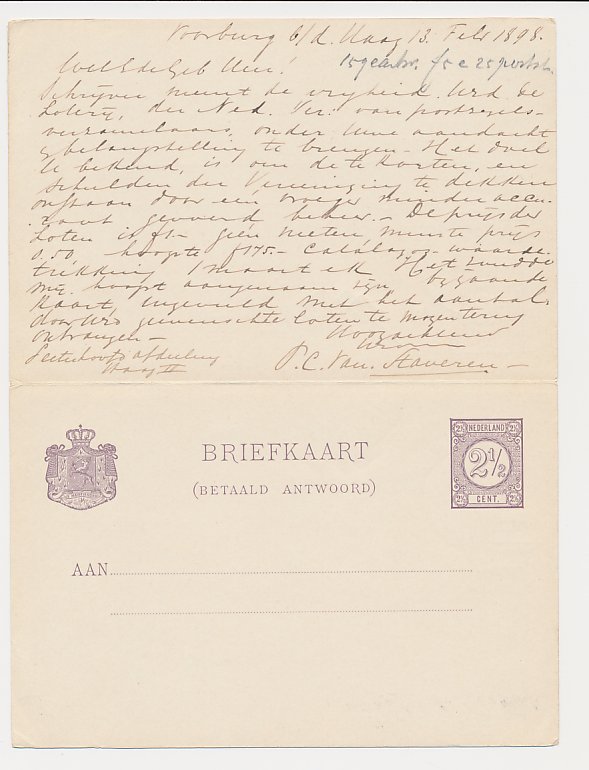 Voorburg b/d. Haag 13. Feb 1898.
WelEdelGeb Heer!
Schrijver neemt de vrijheid. Urd. de
Loterij, der Ned. Ver. van postzegel-
verzamelaars, onder Uwe aandacht
& belangstelling te brengen - Het doel
U bekend, is om de te korten, en
schulden der Vereeniging te dekken
ontstaan door een vroeger minder accu-
raat gevoerd beheer. - De prijs der
Loten is f1- geen nieten minste prijs
0.50 hoogste f175.- catalogus-waarde
trekking 1 maart ek Het zoude
mij hoogst aangenaam zijn bijgaande
Kaart, ingevuld met het aantal
door Urd gewenschte loten te mogen terug
ontvangen -
Hoogachtend
P. C. Van. Staveren -
BRIEFKAART
(BETAALD ANTWOORD)
NEDERLAND
2½
CENT.
AAN